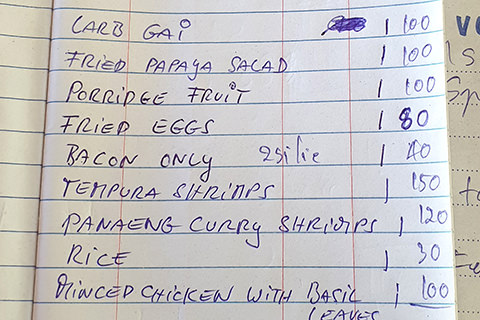 LARB GAI | 100
FRIED PAPAYA SALAD | 100
PORRIDGE FRUIT | 100
FRIED EGGS | 80
BACON ONLY | 40
TEMPURA SHRIMPS | 150
PANAENG CURRY SHRIMPS | 120
RICE | 30
MINCED CHICKEN WITH BASIL | 100
LEAVES